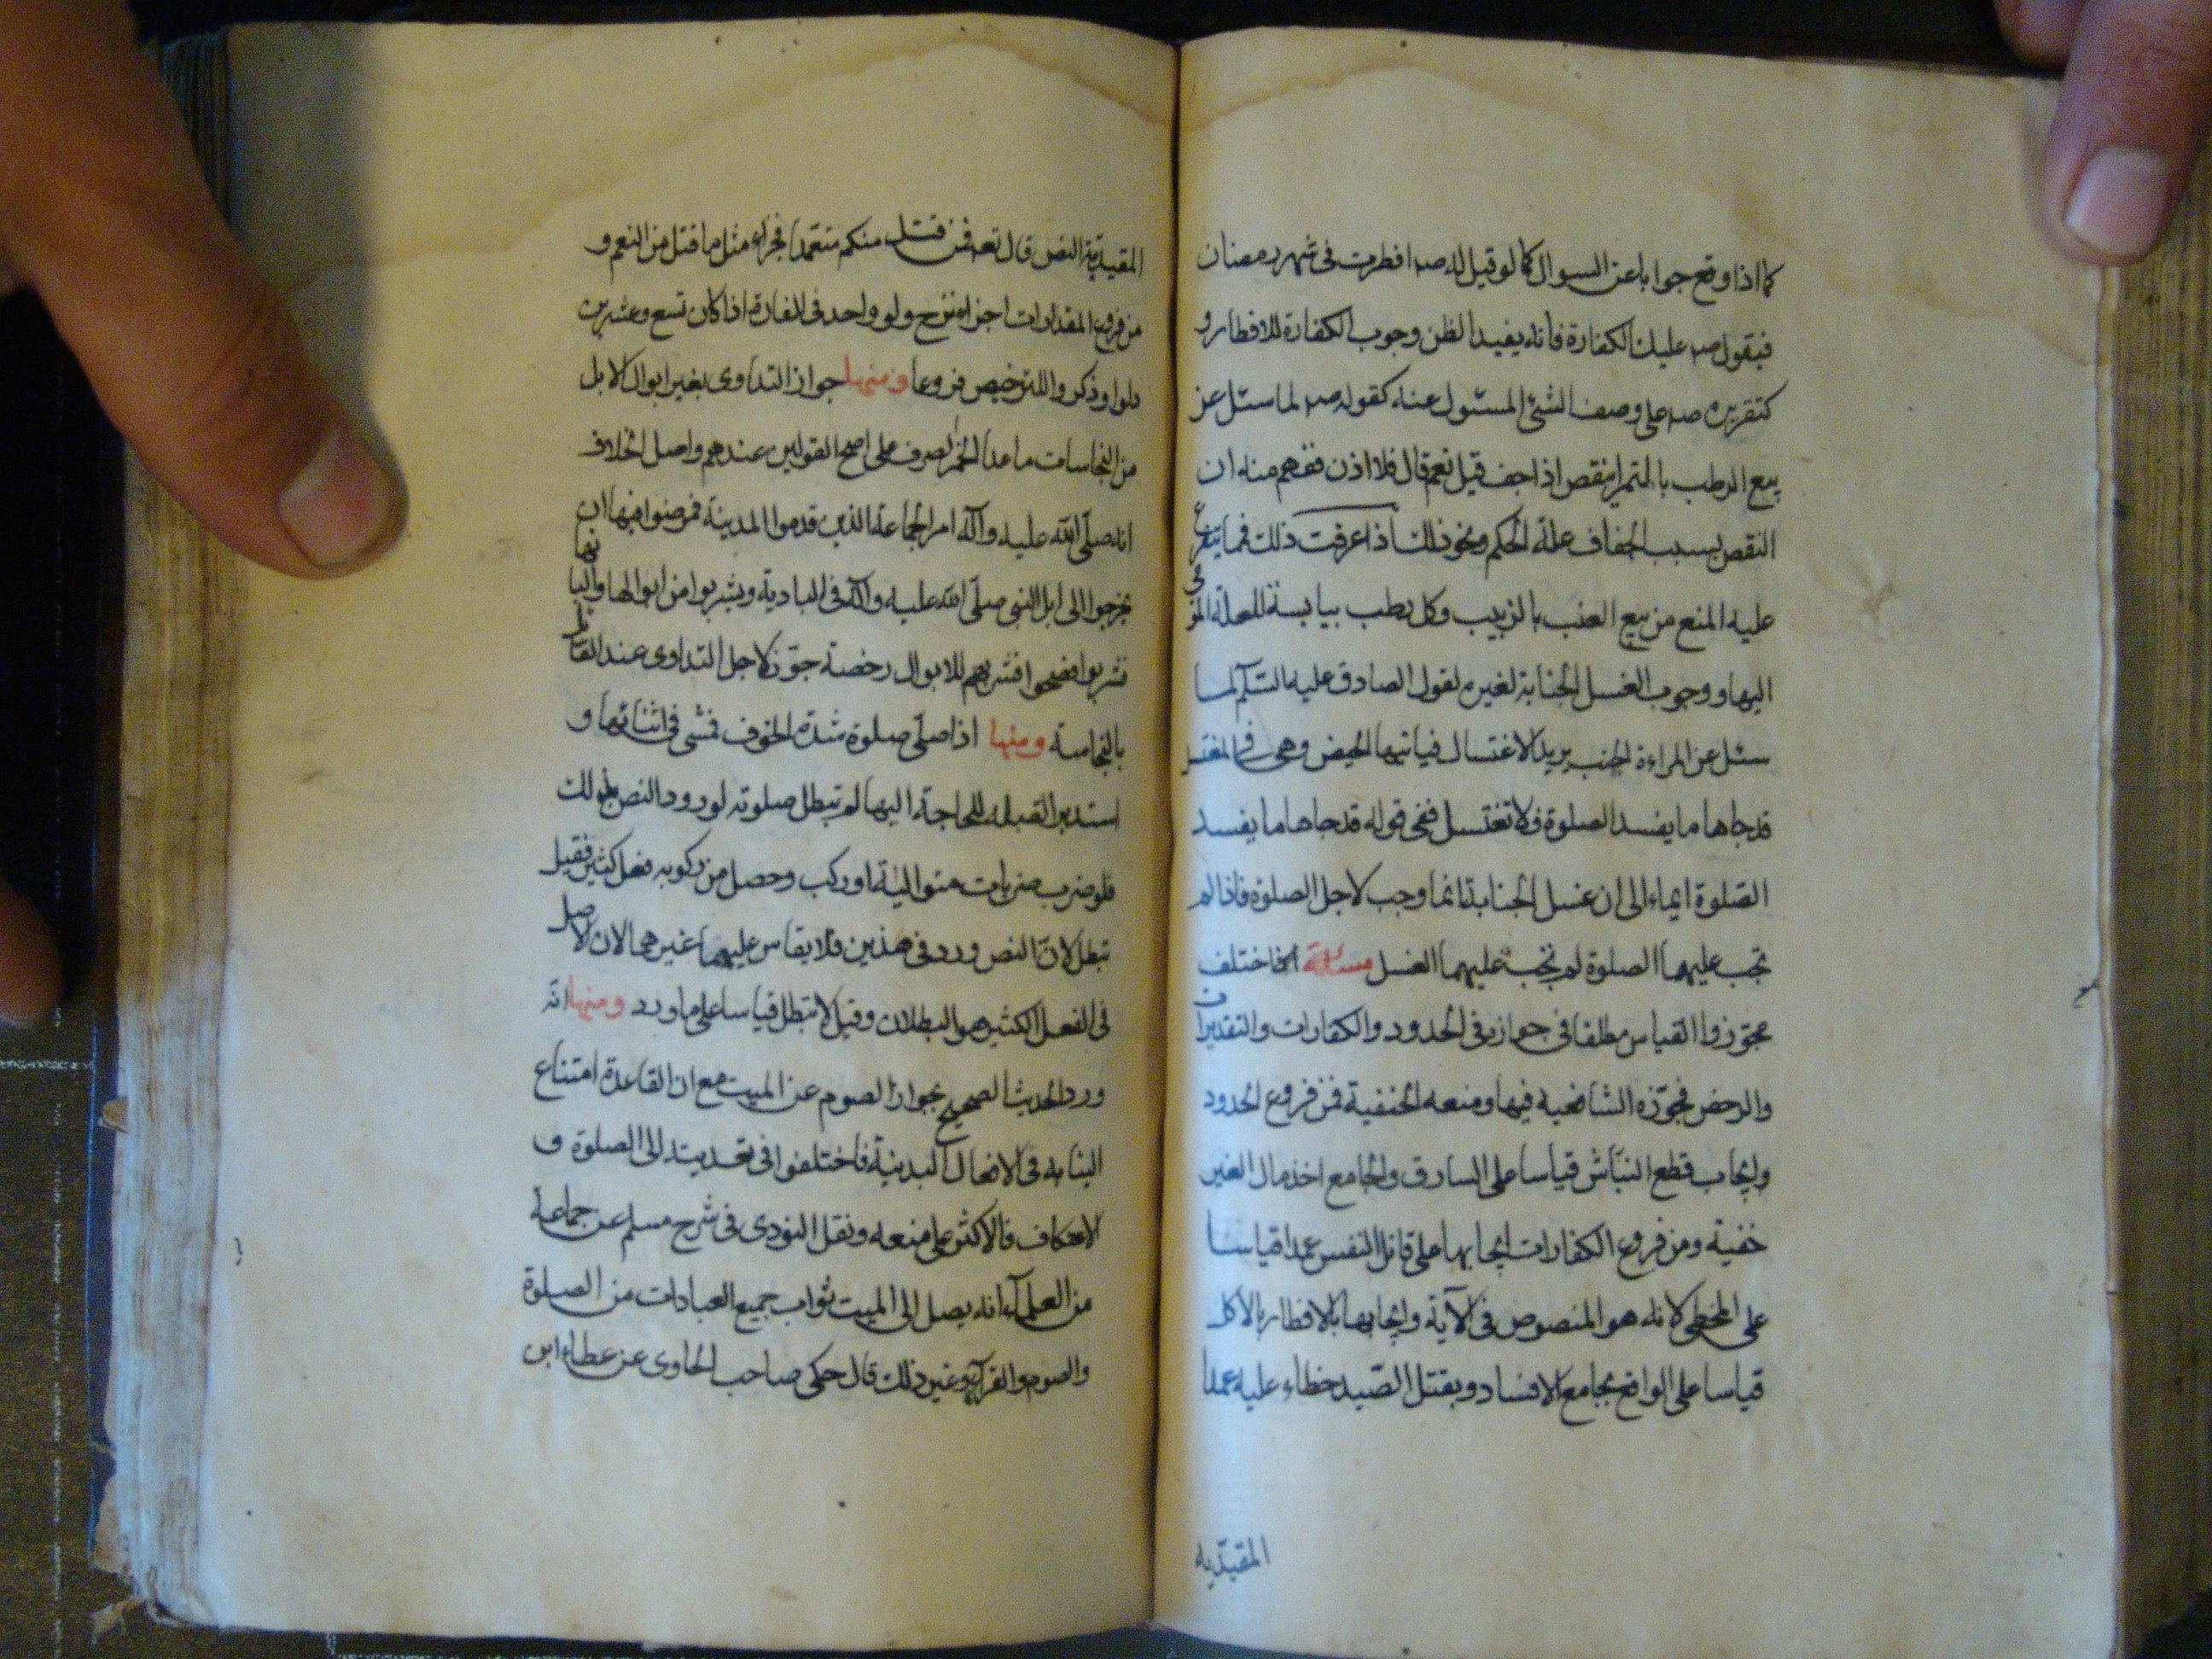 كما اذا وقع جوابا عن السوال كما لو قيل له صم افطرت فى شهر رمضان
فيقول صم عليك الكفارة فانه يفيد الظن وجوب الكفارة للافطار و
كتقريره صم على وصف الشئ المسئول عنه كقوله صم لما سئل عن
بيع الرطب بالتمر اينقص اذا جف قيل نعم قال فلا اذن ففهم منه ان
النقص بسبب الجفاف علة الحكم ونحو ذلك اذا عرفت ذلك فمما يتفرع
عليه المنع من بيع العنب بالزبيب وكل رطب بيابسة للعلة المومى
اليها ووجوب الغسل الجنابة لغيره لقول الصادق عليه السّلم لما
سئل عن المراءة الجنب يريد الاغتسال فياتيها الحيض وهى فى المغتسل
قد جاها ما يفسد الصلوة فلا تغتسل ففى قوله قد جاها ما يفسد
الصّلوة ايماء الى ان غسل الجنابة انما وجب لاجل الصلوة فاذا لم
تجب عليها الصلوة لم تجب عليها الغسل مسئلة اختلف
مجوّزوا القياس مطلقا فى جوازه فى الحدود والكفارات والتقديرات
والرخص فجوّزه الشافعيه فيها ومنعه الحنفية فمن فروع الحدود
وايجاب قطع النبّاش قياسا على السارق والجامع اخذ مال الغير
خفية ومن فروع الكفارات ايجابها على قاتل النفس عمدا قياسا
على المخطى لانه هو المنصوص فى الآية وايجابها بالافطار بالاكل
قياسا على الواقع بجامع الافساد وبقتل الصّيد خطاء عليه عمدا
المقيّديه
المقيديّة النص قال تعه فمن قتل منكم متعمّدا فجزاء مثل ما قتل من النعم و
من فروع المقدارات اجزاه نزح ولو واحد فى الفارة اذا كان تسع وعشرين
دلوا وذكروا للترخيص فروعا ومنها جواز التداوى بغير ابوال الابل
من النجاسات ما عدا الخمر الصرف على اصح القولين عندهم واصل الخلاف
انه صلّى الله عليه وآله امر الجماعة الذين قدموا المدينة فمرضوا فيها ان
يخرجوا الى ابل النبى صلّى الله عليه وآله فى البادية ويشربوا من ابوالها والبانها
فشربوا فصحّوا فشربهم للابوال رخصة جوّز لاجل التداوى عند القائل
بالنجاسة ومنها اذا صلّى صلوة شدة الخوف فمشى فى اثنائها و
استدبر القبلة للحاجة اليها لم تبطل صلوته لورود النص بذلك
فلو ضرب ضربات متوالية او ركب وحصل من ركوبه فعل كثير فقيل
تبطل لان النص ورد فى هذين فلا يقاس عليهما غيرهما لان الاصل
فى الفعل الكثير هو البطلان وقيل لا تبطل قياسا على ما ورد ومنها انّه
ورد الحديث الصحيح بجواز الصوم عن الميت مع ان القاعدة امتناع
النيابه فى الافعال البدنية فاختلفوا فى تعديته الى الصلوة و
الاعتكاف فالاكثر على منعه ونقل النووى فى شرح مسلم عن جماعة
من العلماء انه يصل الى الميت ثواب جميع العبادات من الصلوة
والصوم والقرآن وغير ذلك قال حكى صاحب الحاوى عن عطاء ابن